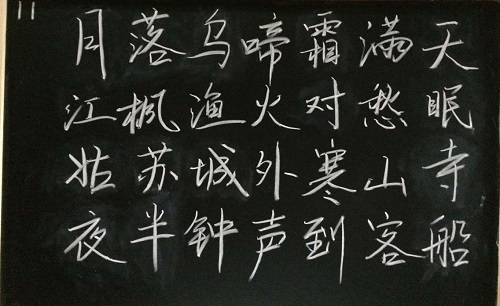 11
月落乌啼霜满天
江枫渔火对愁眠
姑苏城外寒山寺
夜半钟声到客船